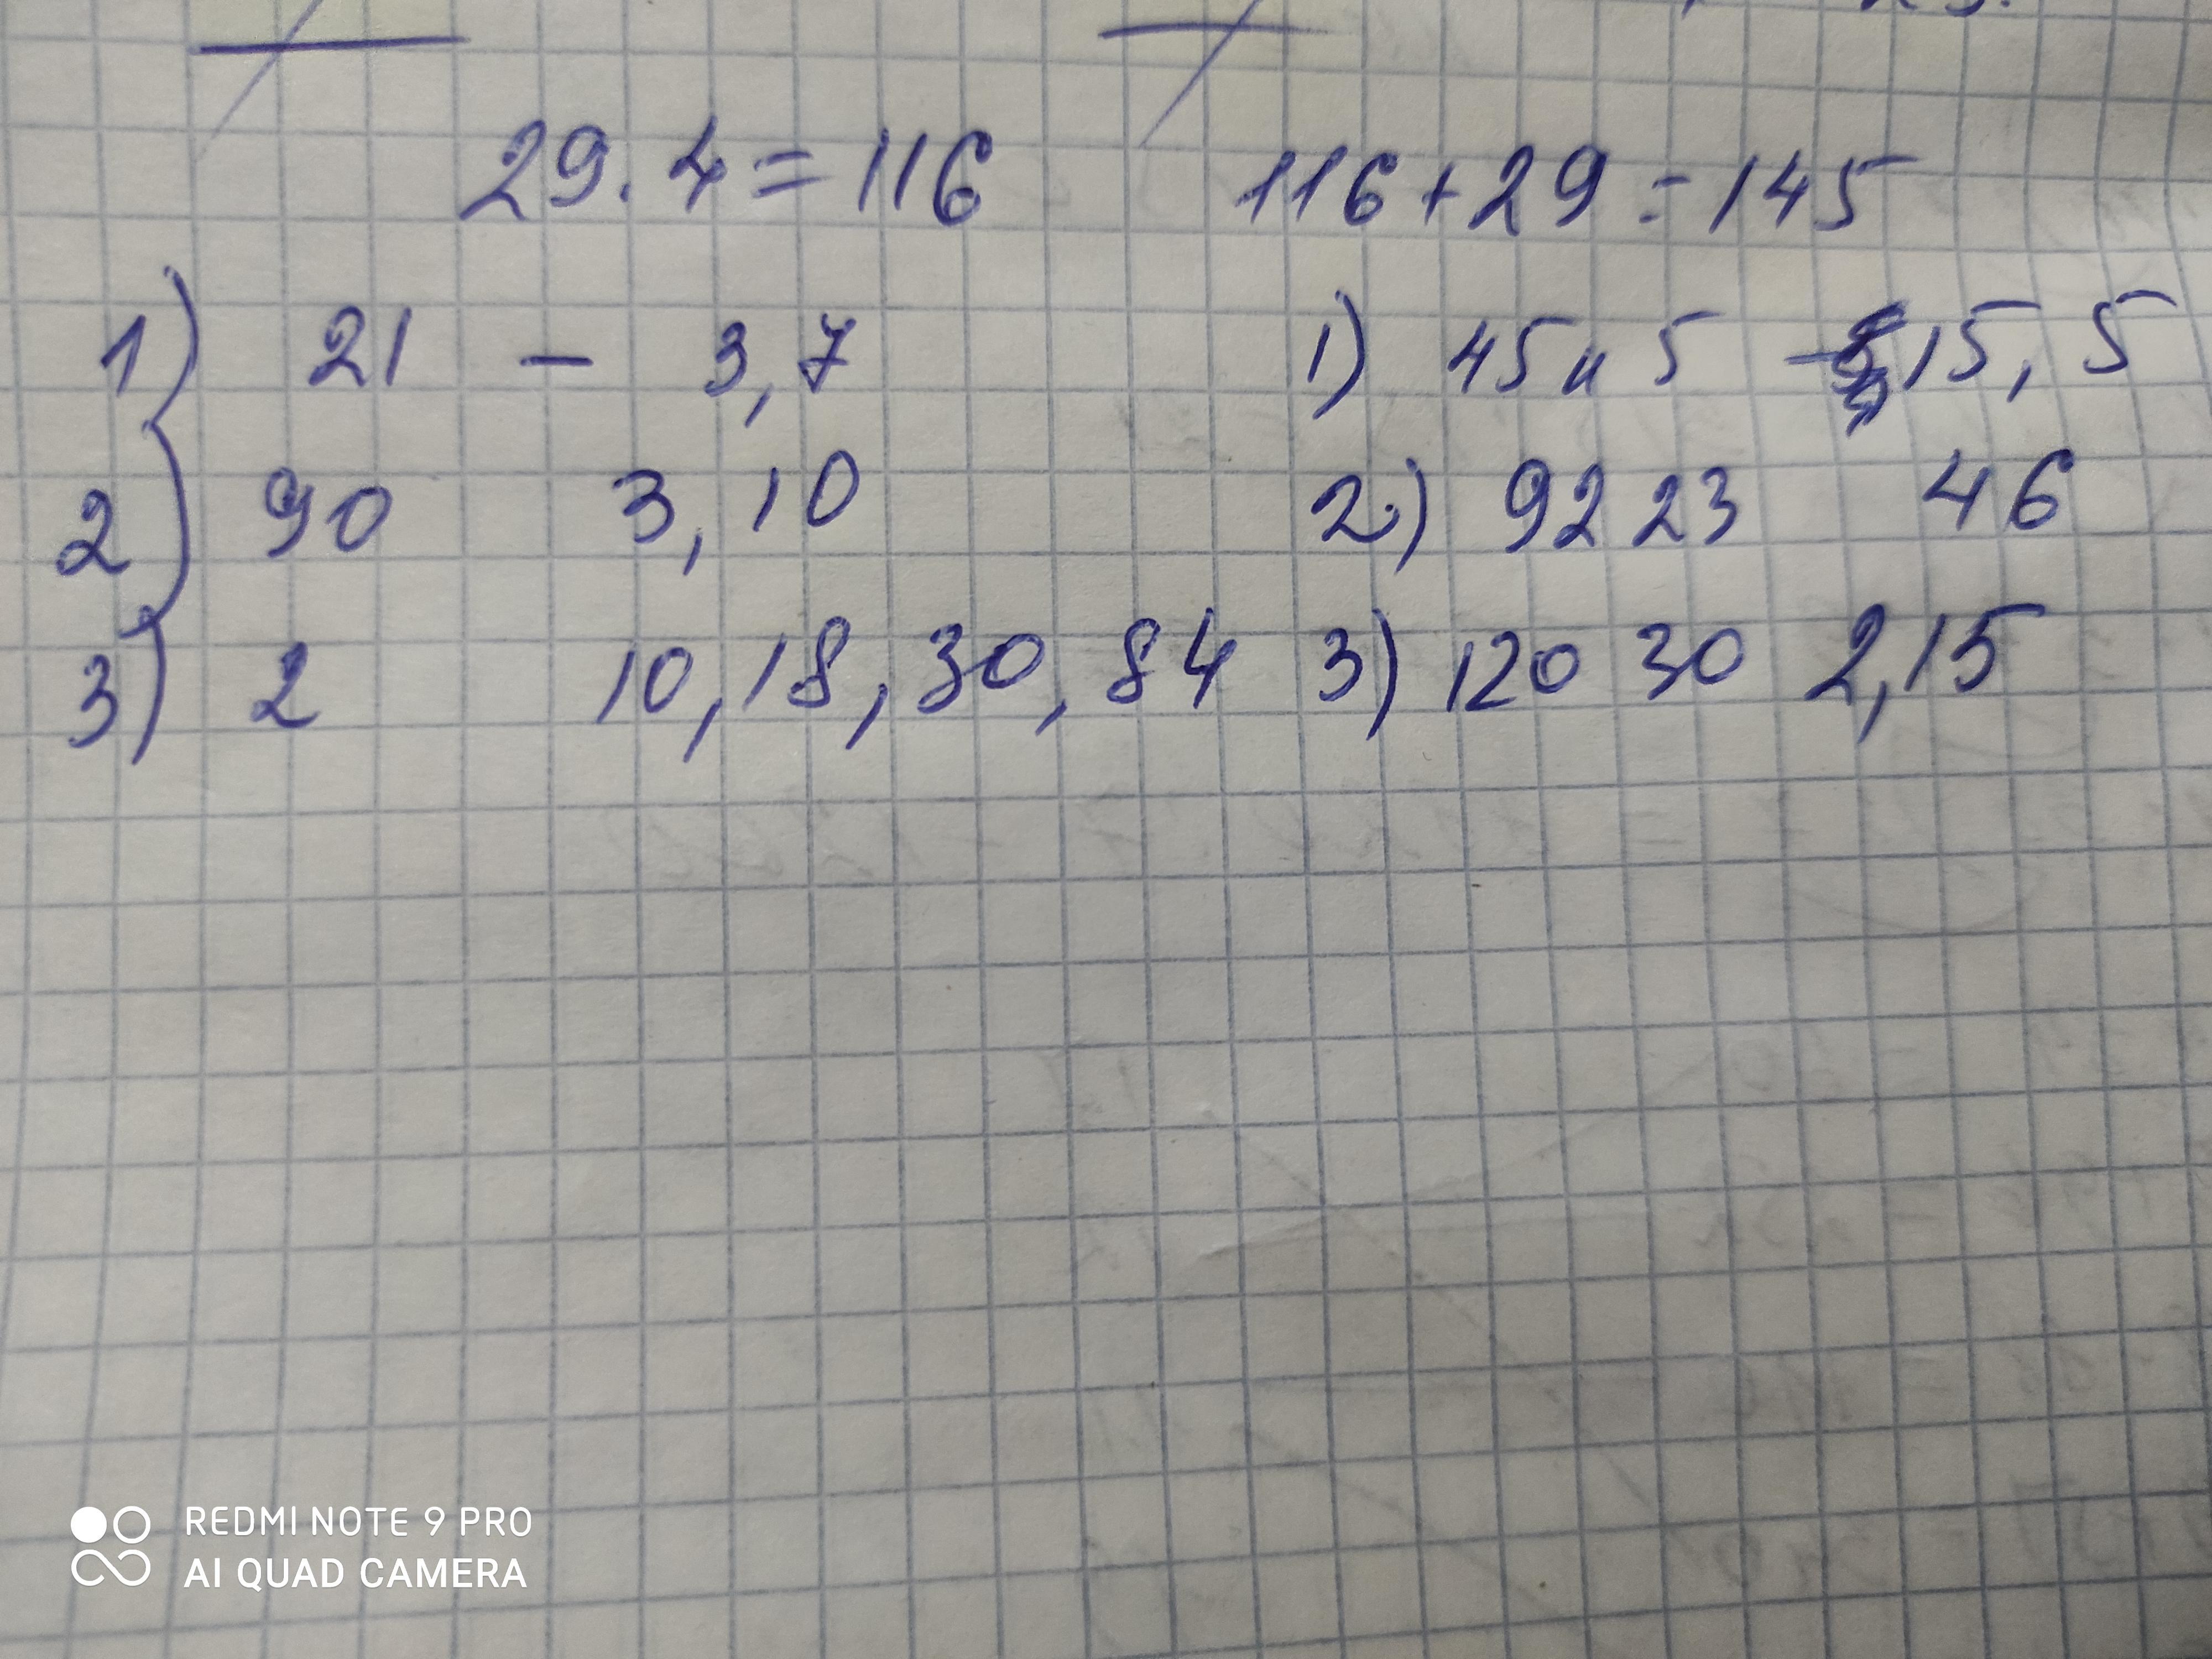 29 · 4 = 116 116 + 29 = 145
1) 21 - 3,7 1) 45 и 5 - 15, 5
2) 90 3, 10 2) 92 23 46
3) 2 10, 18, 30, 84 3) 120 30 2,15
REDMI NOTE 9 PRO
AI QUAD CAMERA